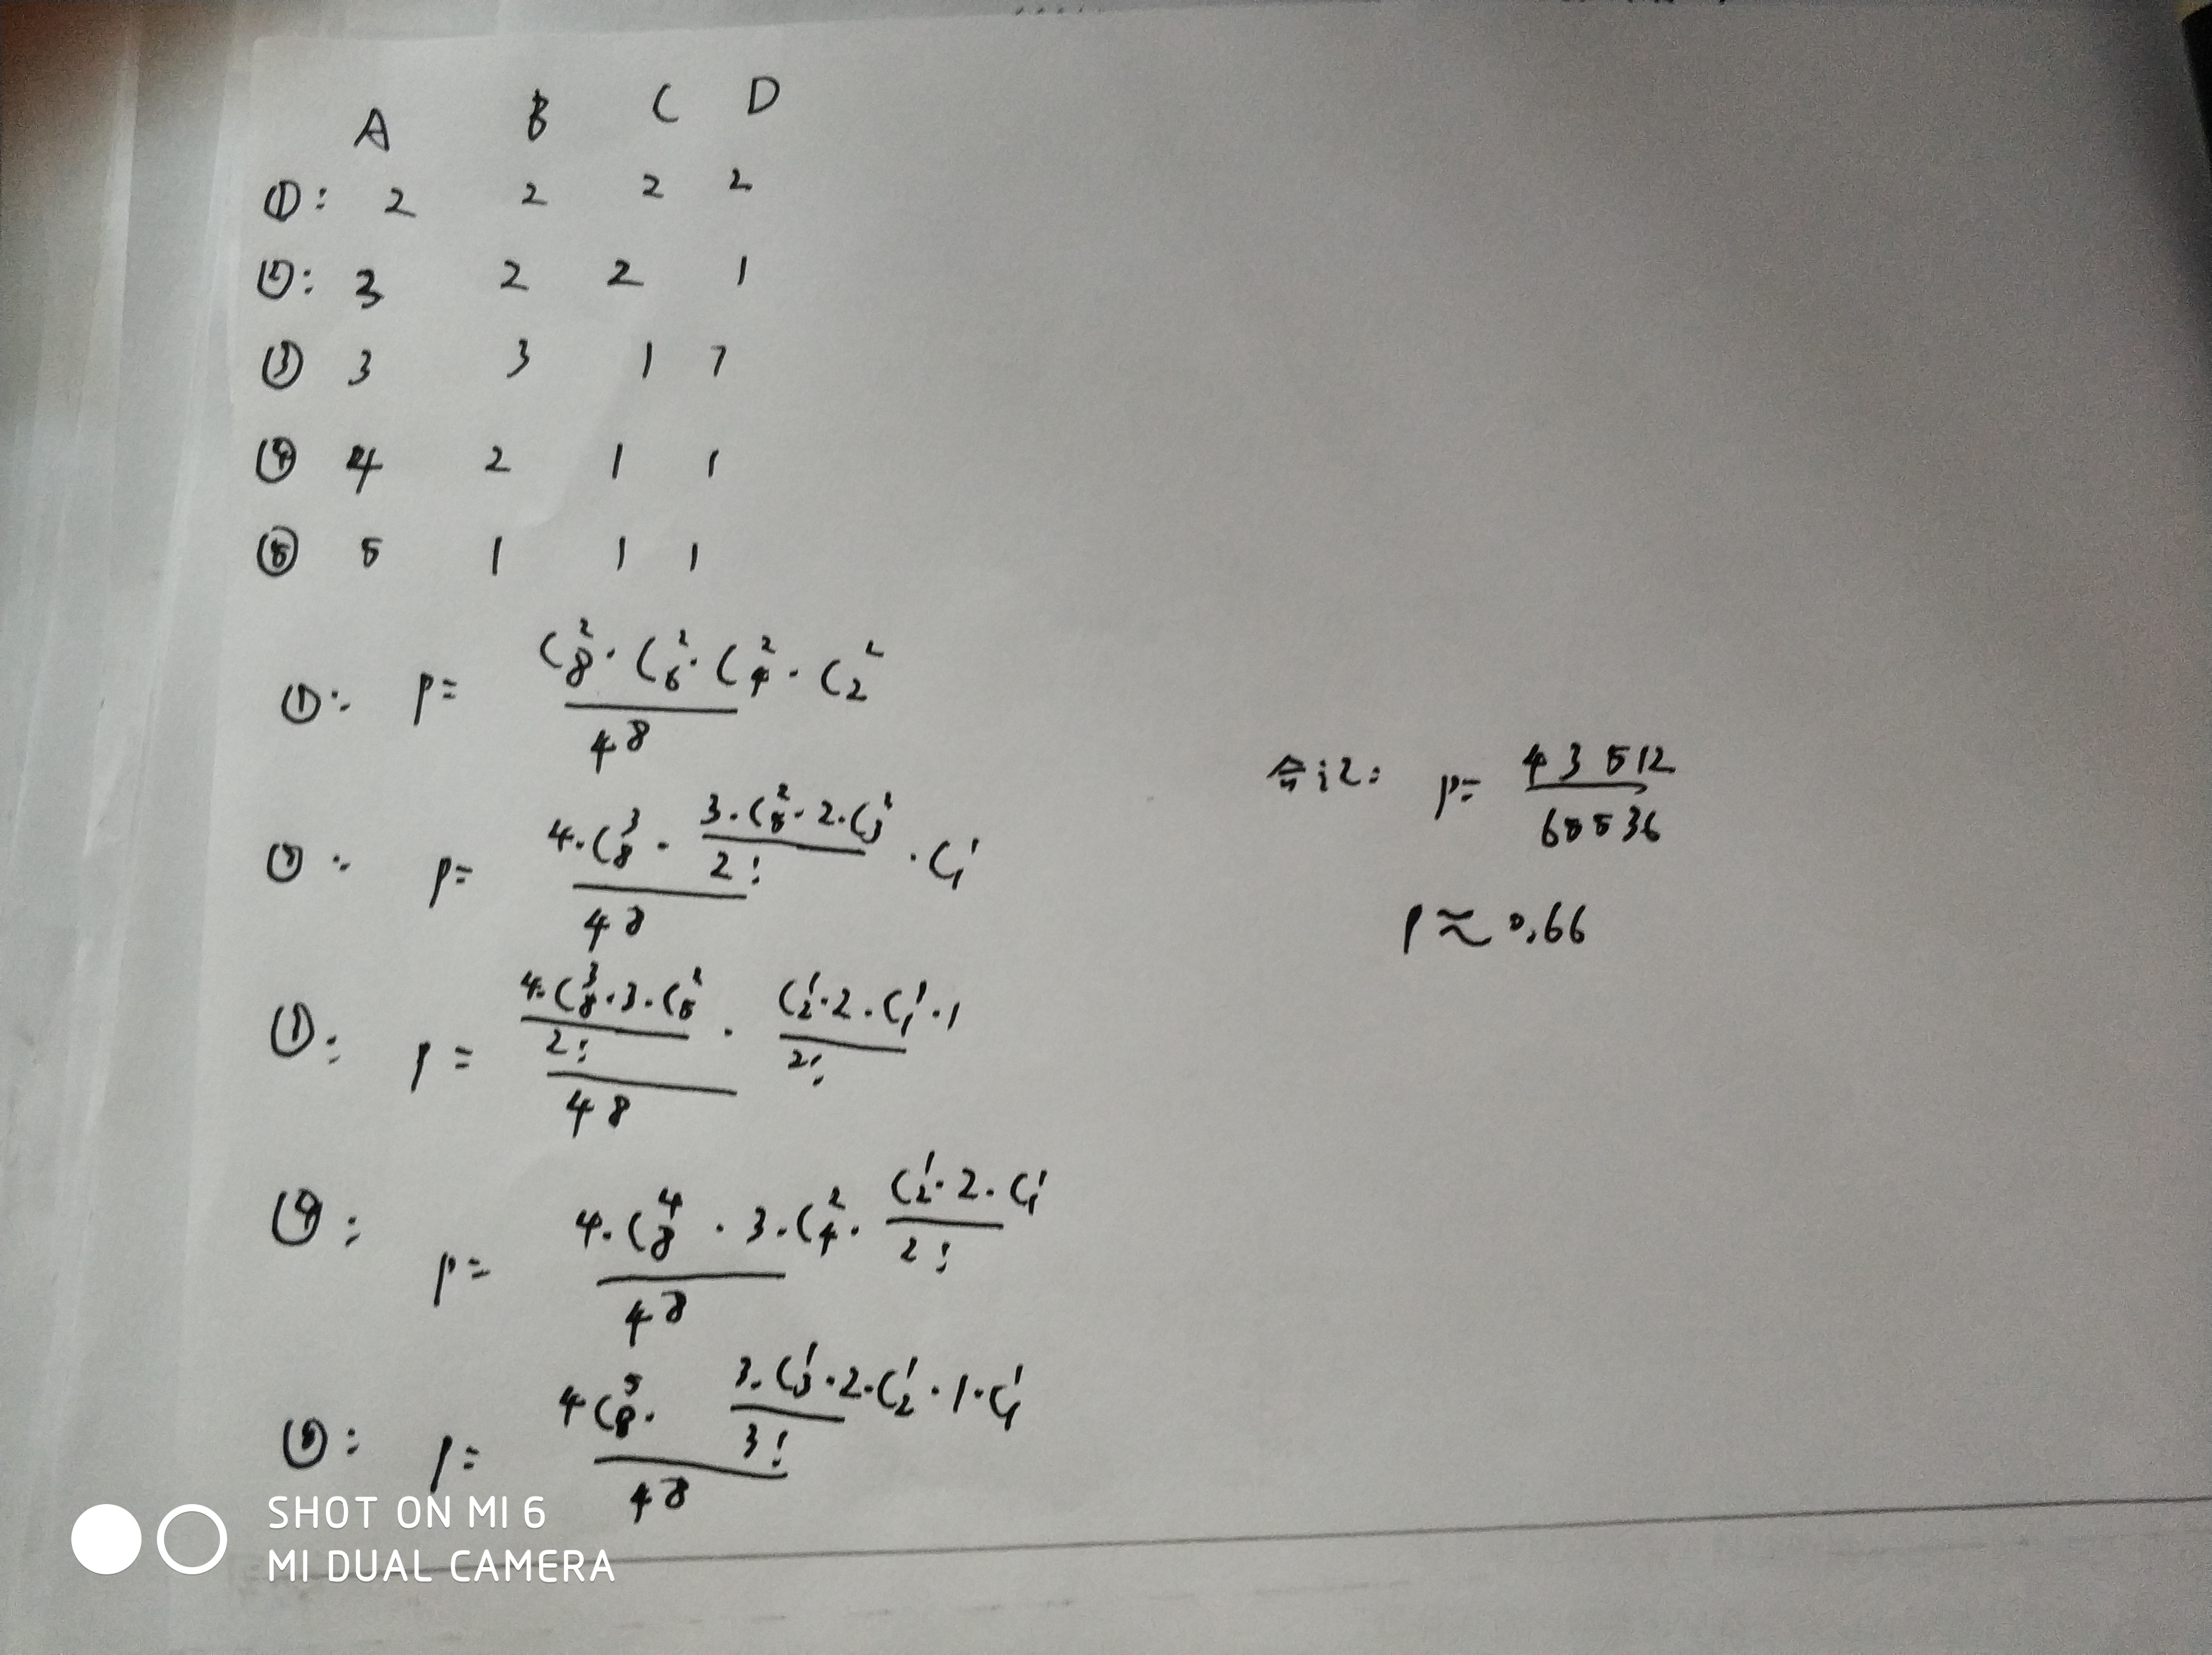 A B C D
①: 2 2 2 2
②: 3 2 2 1
③ 3 3 1 1
④ 4 2 1 1
⑤ 5 1 1 1
①: P= (C_8^2 · C_6^2 · C_4^2 · C_2^2) / 4^8
②: P= (4·C_8^3 · (3·C_5^2·2·C_3^2)/2! · C_1^1) / 4^8
③: P= ((4·C_8^3·3·C_5^3)/2! · (C_2^1·2·C_1^1·1)/2!) / 4^8
④: P= (4·C_8^4 · 3·C_4^2 · (C_2^1·2·C_1^1)/2!) / 4^8
⑤: P= (4C_8^5 · (3·C_3^1·2·C_2^1·1·C_1^1)/3!) / 4^8
合记: P= 43512/65536
P≈0.66
SHOT ON MI 6
MI DUAL CAMERA